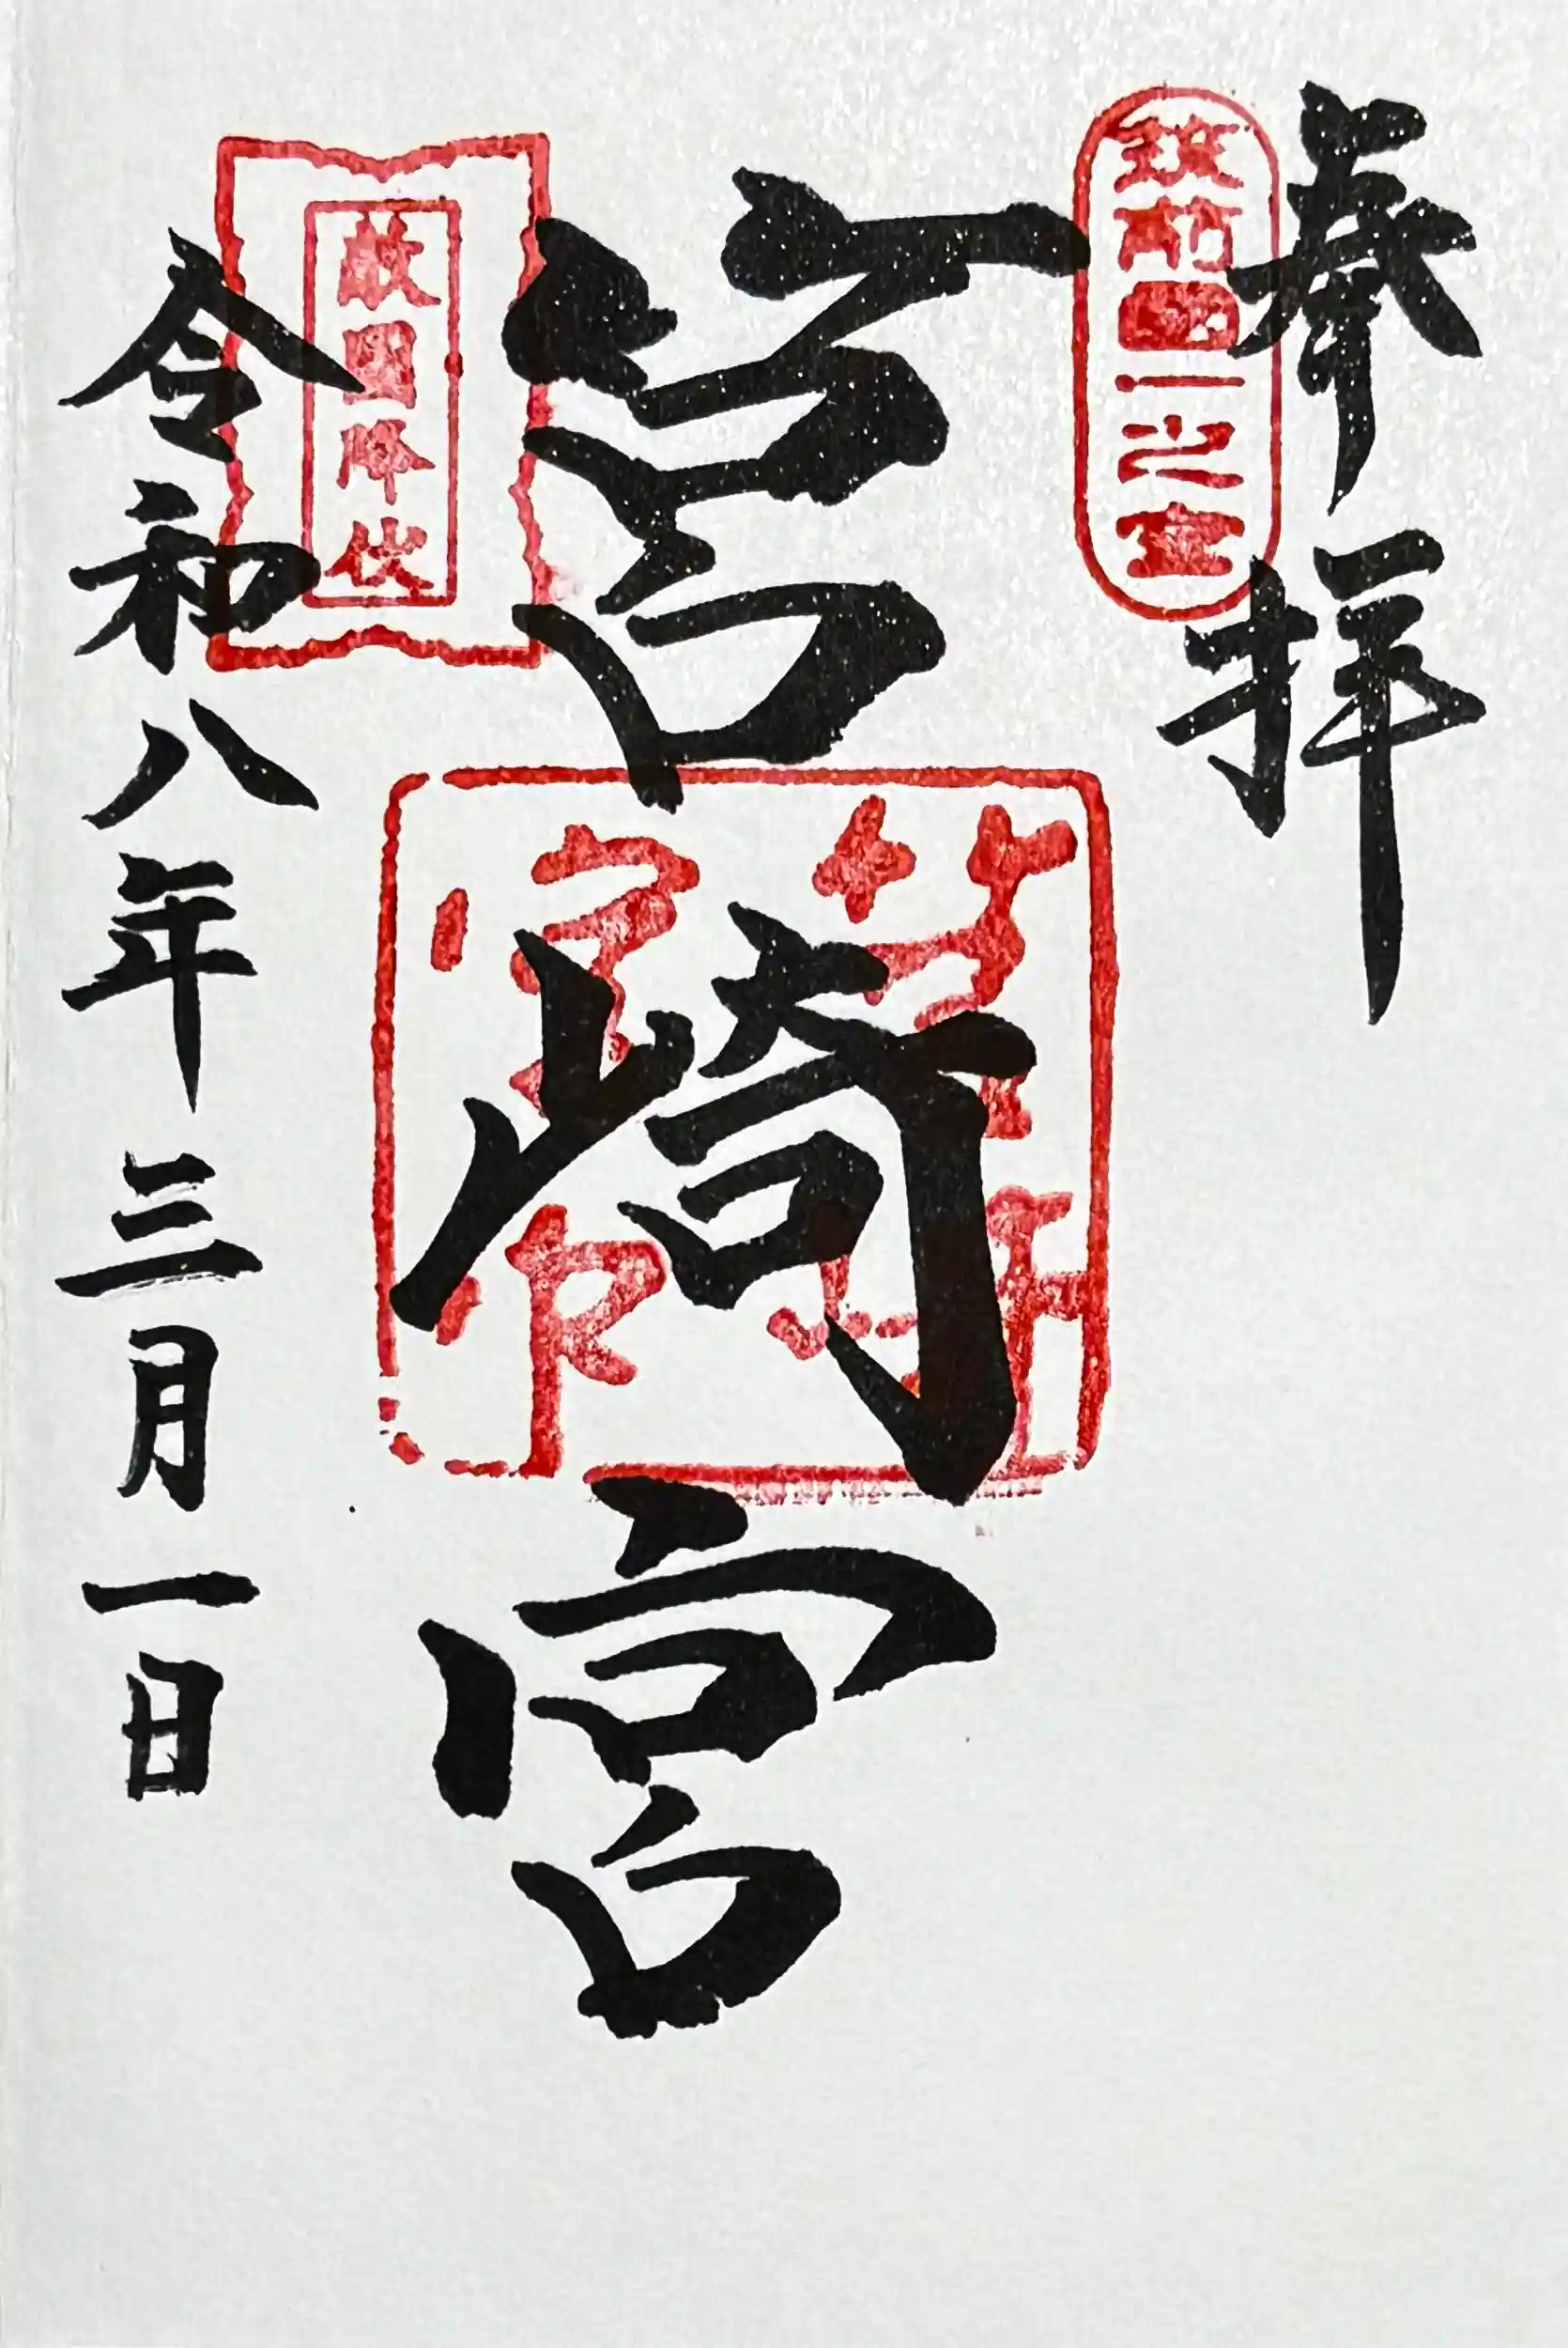 奉拝
筑前國一之宮
筥崎宮
敵國降伏
令和八年三月一日